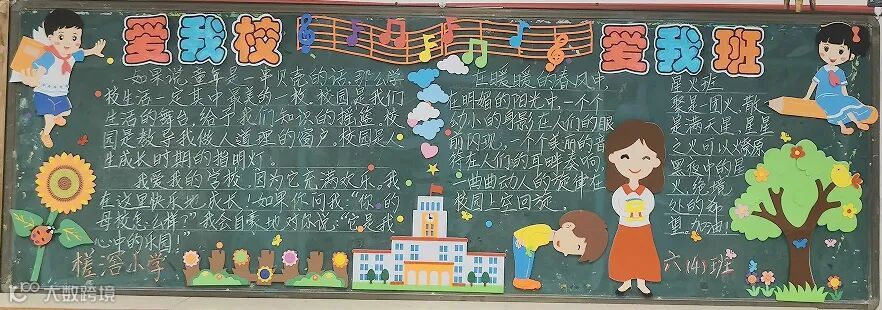 爱我校
爱我班
如果说童年是一串贝壳的话,那么学
校生活一定其中最美的一枚。校园是我们
生活的舞台,给予我们知识的摇篮,校
园是教导我做人道理的窗户,校园是人
生成长时期的指明灯。
我爱我的学校,因为它充满欢乐。我
在这里快乐地成长!如果你问我:“你的
母校怎么样?”我会自豪地对你说:“它是我
心中的乐园!”
槎滘小学
在暖暖的春风中,
在明媚的阳光中,一个个
幼小的身影在人们的眼
前闪现,一个个美丽的音
符在人们的耳畔奏响,
一曲曲动人的旋律在
校园上空回旋。
星火班
聚是一团火,散
是满天星,星星
之火可以燎原
黑夜中的星
火,绝境
处的希
望。加油!
六(4)班
大数跨境